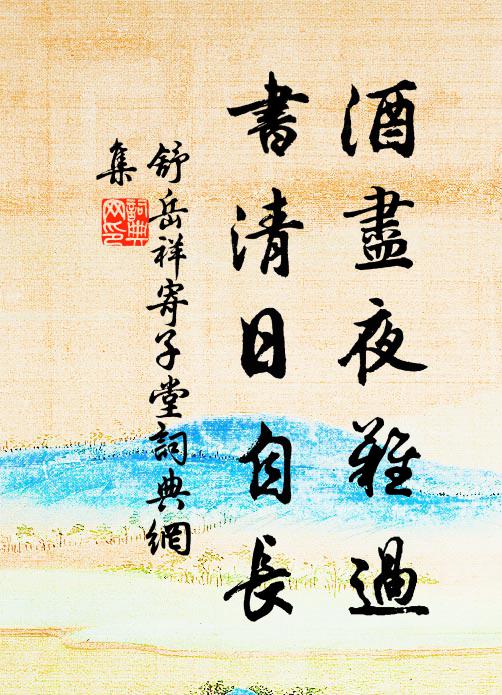 酒盡夜難過
書清日自長
舒岳祥寄子堂詞典網
集
詞典
网印